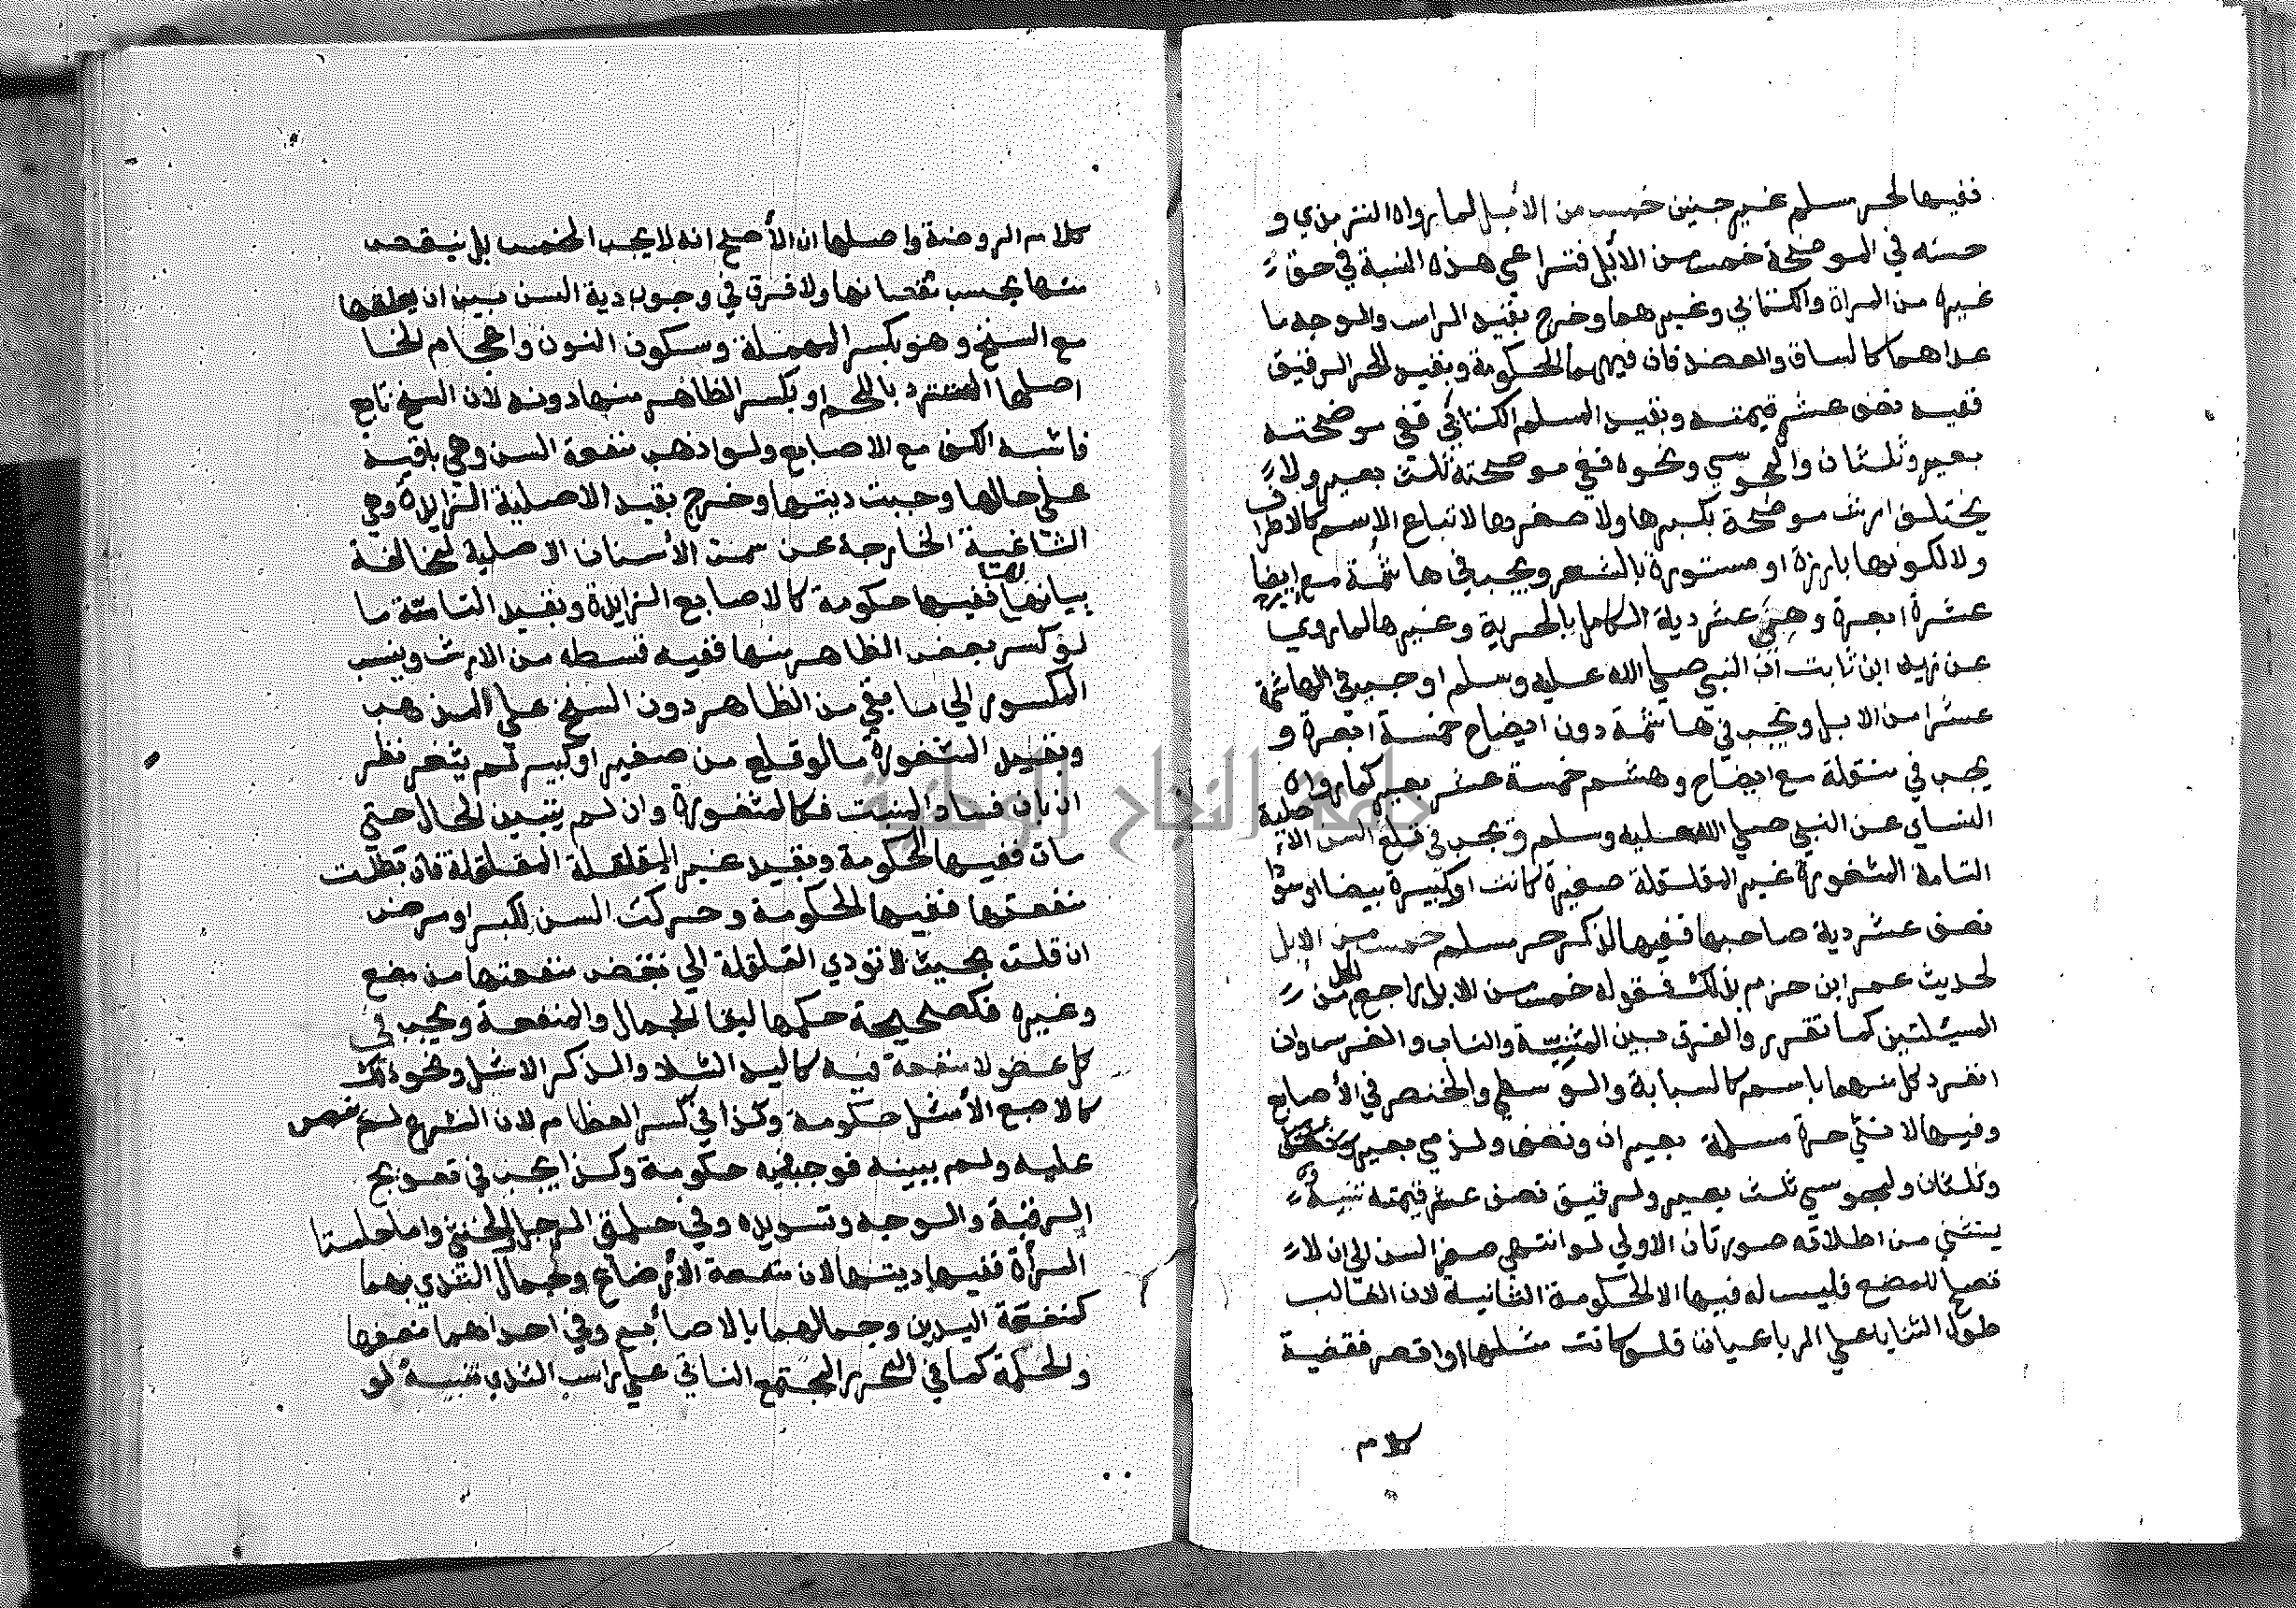 ففيها لحر مسلم غير جنين خمس من الابل لما رواه الترمذي و
حسنه في الموضحة خمس من الابل فتراعي هذه النسبة في حق
غيره من المراة والكتابي وغيرهما وخرج بقيد الراس والوجه ما
عداهما كالساق والعضد فان فيهما الحكومة وبقيد الحر الرقيق
ففيه نصف عشر قيمته وبقيد المسلم الكتابي ففي موضحته
بعير وثلثان والمجوسي ونحوه ففي موضحته ثلث بعير ولا
يختلف ارش موضحة بكبرها ولا صغرها لاتباع الاسم كالاطراف
ولا لكونها بارزة او مستورة بالشعر ويجب في هاشمة مع ايضاح
عشرة ابعرة وهي عشر دية الكامل بالحرية وغيرها لما روي
عن زيد ابن ثابت ان النبي صلي الله عليه وسلم اوجب في الهاشمة
عشرا من الابل ويجب في هاشمة دون ايضاح خمسة ابعرة و
يجب في منقلة مع ايضاح وهشم خمسة عشر بعير كما رواه
النساي عن النبي صلي الله عليه وسلم ويجب في قلع السن الاصلية
التامة المثغورة غير المقلقلة صغيرة كانت او كبيرة بيضا او سودا
نصف عشر دية صاحبها ففيها لذكر حر مسلم خمس من الابل
لحديث عمر ابن حزم بذلك فقوله خمس من الابل راجع لكل من
المسيلتين كما تقرر والفرق بين الثنية والناب والضرس وان
انفرد كل منهما باسم كالسبابة والوسطي والخنصر في الأصابع
وفيها لانثي حرة مسلمة بعيران ونصف ولذمي بعير
وثلثان ولمجوسي ثلث بعير ولرقيق نصف عشر قيمته تنبيه
يستثني من اطلاقه صورتان الاولي لو انتهي صغر السن الي ان لا
تصلح للمضغ فليس له فيها الا الحكومة الثانية لان الغالب
طول الثنايا علي الرباعيات فلو كانت مثلها او اقصر فقضية
كلام
كلام الروضة واصلها ان الأصح انه لا يجب الخمس بل ينقص
منها بحسب نقصانها ولا فرق في وجوب دية السن بين ان يقلعها
مع السنخ وهو بكسر المهملة وسكون النون واعجام الخا
اصلها المستتر باللحم او بكسر الظاهر منها دونه لان السنخ تابع
فاشبه الكف مع الاصابع ولو اذهب منفعة السن وهي باقية
علي حالها وجبت ديتها وخرج بقيد الاصلية الزايدة وهي
الشاغية الخارجة عن سمت الأسنان الاصلية لمخالفة
نباتها لها ففيها حكومة كالاصابع الزايدة وبقيد التامة ما
لو كسر بعض الظاهر منها ففيه قسطه من الارش وينسب
المكسور الي ما بقي من الظاهر دون السنخ علي المذهب
وبقيد المثغورة ما لو قلع من صغير او كبير لم يثغر نظر
ان بان فساد المنبت فكالمثغورة وان لم يتبين الحال حتي
مات ففيها الحكومة وبقيد غير المقلقلة المقلقلة فان بطلت
منفعتها ففيها الحكومة وحركت السن لكبر او مرض
ان قلت بحيث لا تودي القلقلة الي نقض منفعتها من مضغ
وغيره فكصحيحة حكمها لبقا الجمال والمنفعة ويجب في
كل عضو لا منفعة فيه كاليد الشلا والذكر الاشل ونحو ذلك
كالاصبع الأشل حكومة وكذا في كسر العظام لان الشرع لم ينص
عليه ولم يبينه فوجب فيه حكومة وكذا يجب في تعويج
الرقبة والوجه وتسويده وفي حلمتي الرجل والخنثي واما حلمتا
المرأة ففيها ديتها لان منفعة الأرضاع وجمال الثدي بهما
كمنفعة اليدين وجمالهما بالاصابع وفي احداهما نصفها
والحلمة كما في التحرير المجتمع الناتي علي راس الثدي تنبيه لو
جامعة النجاح الوطنية